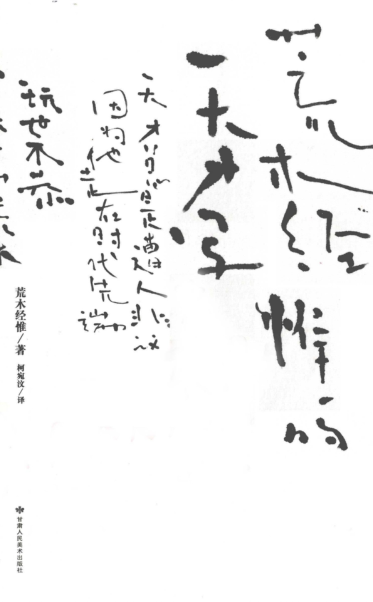 荒木经惟的
天才写
天才总是遭人非议
因为他走在时代先端
玩世不恭
荒木经惟/著
柯宛汶/译
甘肃人民美术出版社